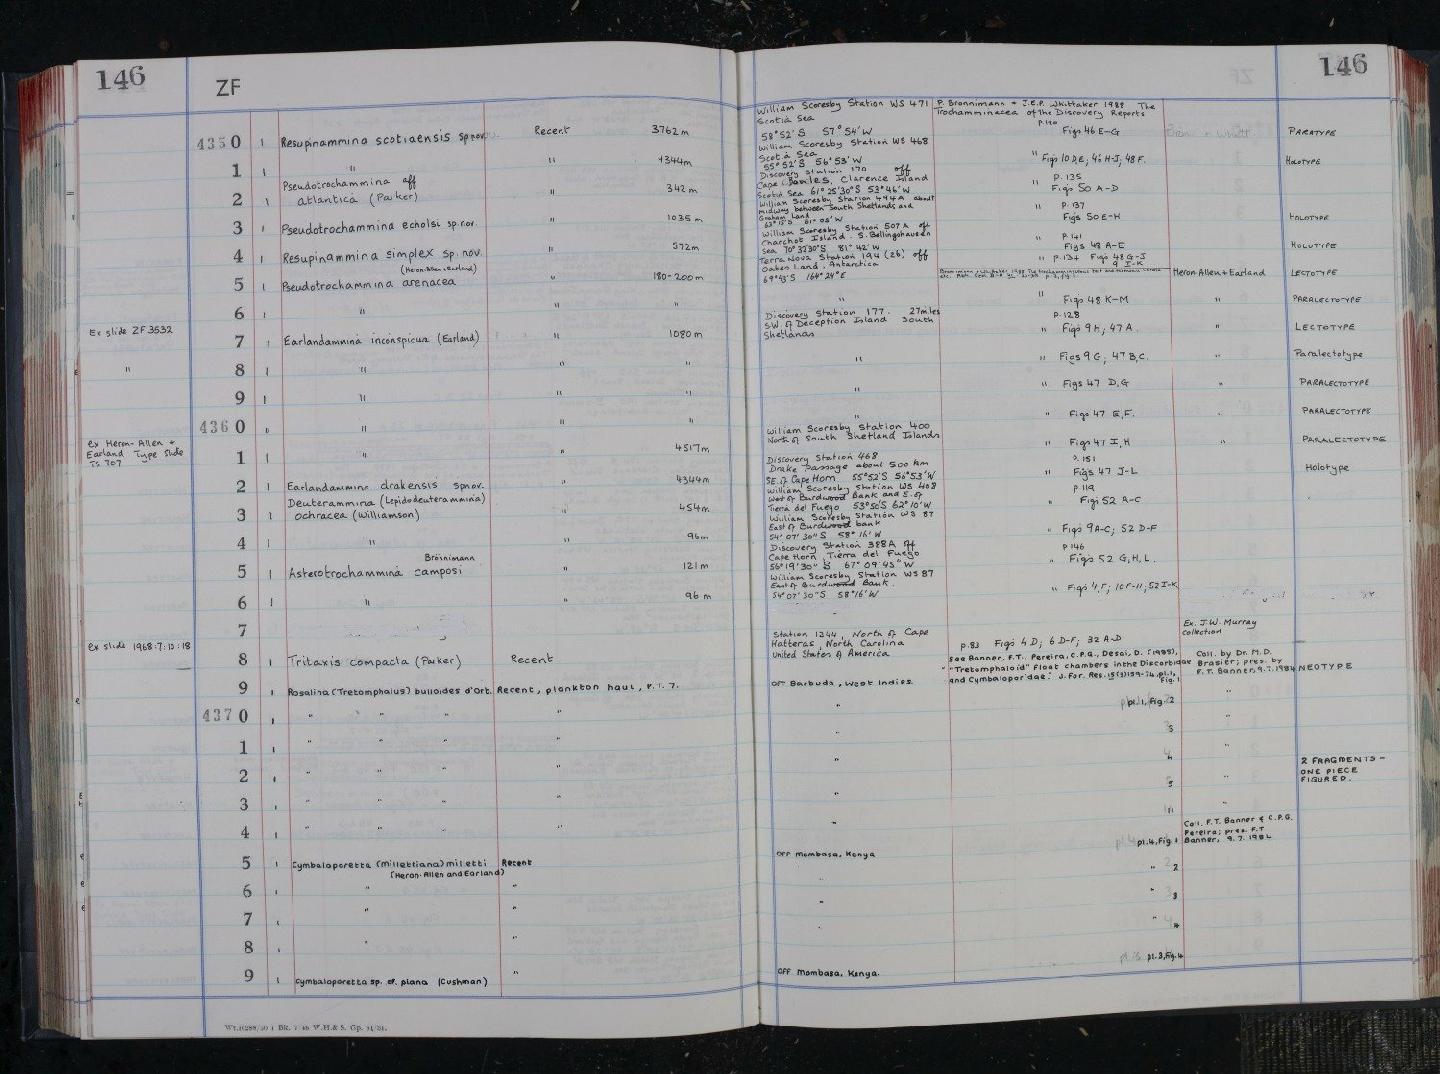 146
ZF
4350 1 Resupinammina scotiaensis sp.nov. Recent 3762m
1 1 " " 4344m
Pseudotrochammina aff
2 1 atlantica (Parker) " 342m
3 1 Pseudotrochammina echolsi sp.nov. " 1035m
4 1 Resupinammina simplex sp. nov. " 572m
(Heron-Allen & Earland)
5 1 Pseudotrochammina arenacea " 180-200m
6 1 " " "
Ex slide ZF3532
7 1 Earlandammina inconspicua (Earland) " 1080m
" 8 1 " " "
9 1 " " "
4360 " " " "
ex Heron-Allen +
Earland Type Slide
1 1 " " 4517m
2 1 Earlandammina drakensis sp.nov. " 4344m
Deuterammina (Lepidodeuterammina)
3 1 ochracea (Williamson) " 454m
4 1 " " 96m
Brönnimann
5 1 Asterotrochammina camposi " 121m
6 1 " " 96m
7
ex slide 1968:7:15:18
8 1 Tritaxis compacta (Parker) Recent
9 1 Rosalina (Tretomphalus) bulloides d'Orb. Recent, plankton haul, P.T. 7.
4370 1 " " " "
1 1 " " " "
2 1 " " " "
3 1 " " " "
4 1 " " " "
5 1 Cymbaloporetta (Millettiana) milletti Recent
(Heron-Allen and Earland)
6 1 " "
7 1 " "
8 1 " "
9 1 Cymbaloporetta sp. cf. plana (Cushman) "
146
William Scoresby Station WS 471
Scotia Sea
58°52'S 57°54'W
P. Bronnimann + J.E.P. Whittaker 1988 The
Trochamminacea of the Discovery Reports
p.120
Figs 46 E-G PARATYPE
William Scoresby Station WS 468
Scotia Sea
55°52'S 56°53'W
" Figs 10 D,E; 46 H-J, 48 F. HOLOTYPE
Discovery Station 170 off
Cape Bowles, Clarence Island
Scotia Sea 61°25'30"S 53°46'W
p.135
" Figs 50 A-D
William Scoresby Station 494A about
midway between South Shetlands and
Graham Land
p.137
" Figs 50 E-H HOLOTYPE
William Scoresby Station 507A off
Charchot Island. S. Bellingshausen
Sea 70°32'30"S 81°42'W
p.141
" Figs 48 A-E HOLOTYPE
Terra Nova Station 194 (26) off
Oates Land, Antarctica
69°43'S 164°24'E
" p.134 Figs 48 G-J
9 I-K
Heron-Allen + Earland LECTOTYPE
" " Figs 48 K-M " PARALECTOTYPE
Discovery Station 177. 27 miles
S.W. of Deception Island South
Shetlands
p.128
" Figs 9 H; 47 A. " LECTOTYPE
" " Figs 9 G; 47 B,C. " Paralectotype
" " Figs 47 D,G " PARALECTOTYPE
" " Figs 47 E,F. " PARALECTOTYPE
William Scoresby Station 400
North of South Shetland Islands
" Figs 47 I,H " PARALECTOTYPE
Discovery Station 468
Drake Passage about 500 km
SE. of Cape Horn 55°52'S 56°53'W
p.131
" Figs 47 J-L Holotype
William Scoresby Station WS 408
West of Burdwood Bank and E. of
Tierra del Fuego 53°50'S 62°10'W
p.119
" Figs 52 A-C
William Scoresby Station WS 87
East of Burdwood bank
54°07'30"S 58°16'W
" Figs 9A-C; 52 D-F
Discovery Station 388A off
Cape Horn, Tierra del Fuego
56°19'30"S 67°09'45"W
p.146
" Figs 52 G,H,L.
William Scoresby Station WS 87
East of Burdwood Bank.
54°07'30"S 58°16'W
Station 1244, North of Cape
Hatteras, North Carolina
United States of America
p.83 Figs 4D; 6 D-F; 32 A-D
Ex. J.W. Murray
Collection
Off Barbuda, West Indies.
See Banner, F.T., Pereira, C.P.G., Desai, D. (1985),
"Tretomphaloid" Float chambers in the Discorbidae
and Cymbaloporidae: J. For. Res. 15(3)159-74, pl.1,
Fig.1
Coll. by Dr. M.D.
Brasier; pres. by
F.T. Banner, 9.7.1984 NEOTYPE
" pl.1, Fig. 2 "
" 3 "
" 4 "
2 FRAGMENTS -
ONE PIECE
FIGURED.
" 5 "
"
Off Mombasa, Kenya
pl.4, Fig.1
Coll. F.T. Banner & C.P.G.
Pereira; pres. F.T.
Banner, 9.7.1984
" " 2
" " 3
" " 4
Off Mombasa, Kenya.
pl.3, Fig.4